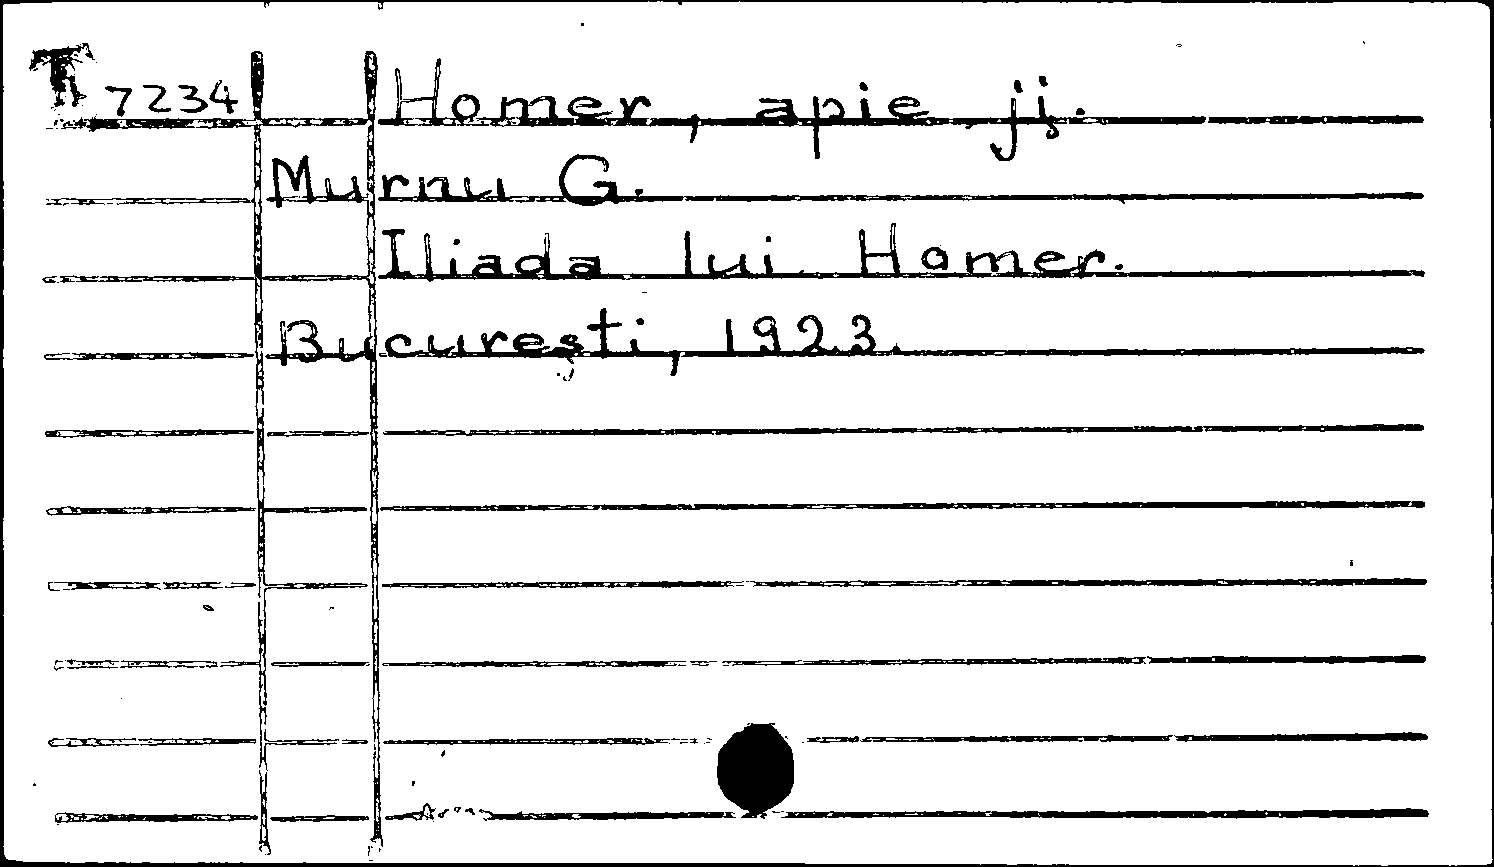 T 7234 Homer, apie jį.
Murnu G.
Iliada lui Homer.
Bucureşti, 1923.